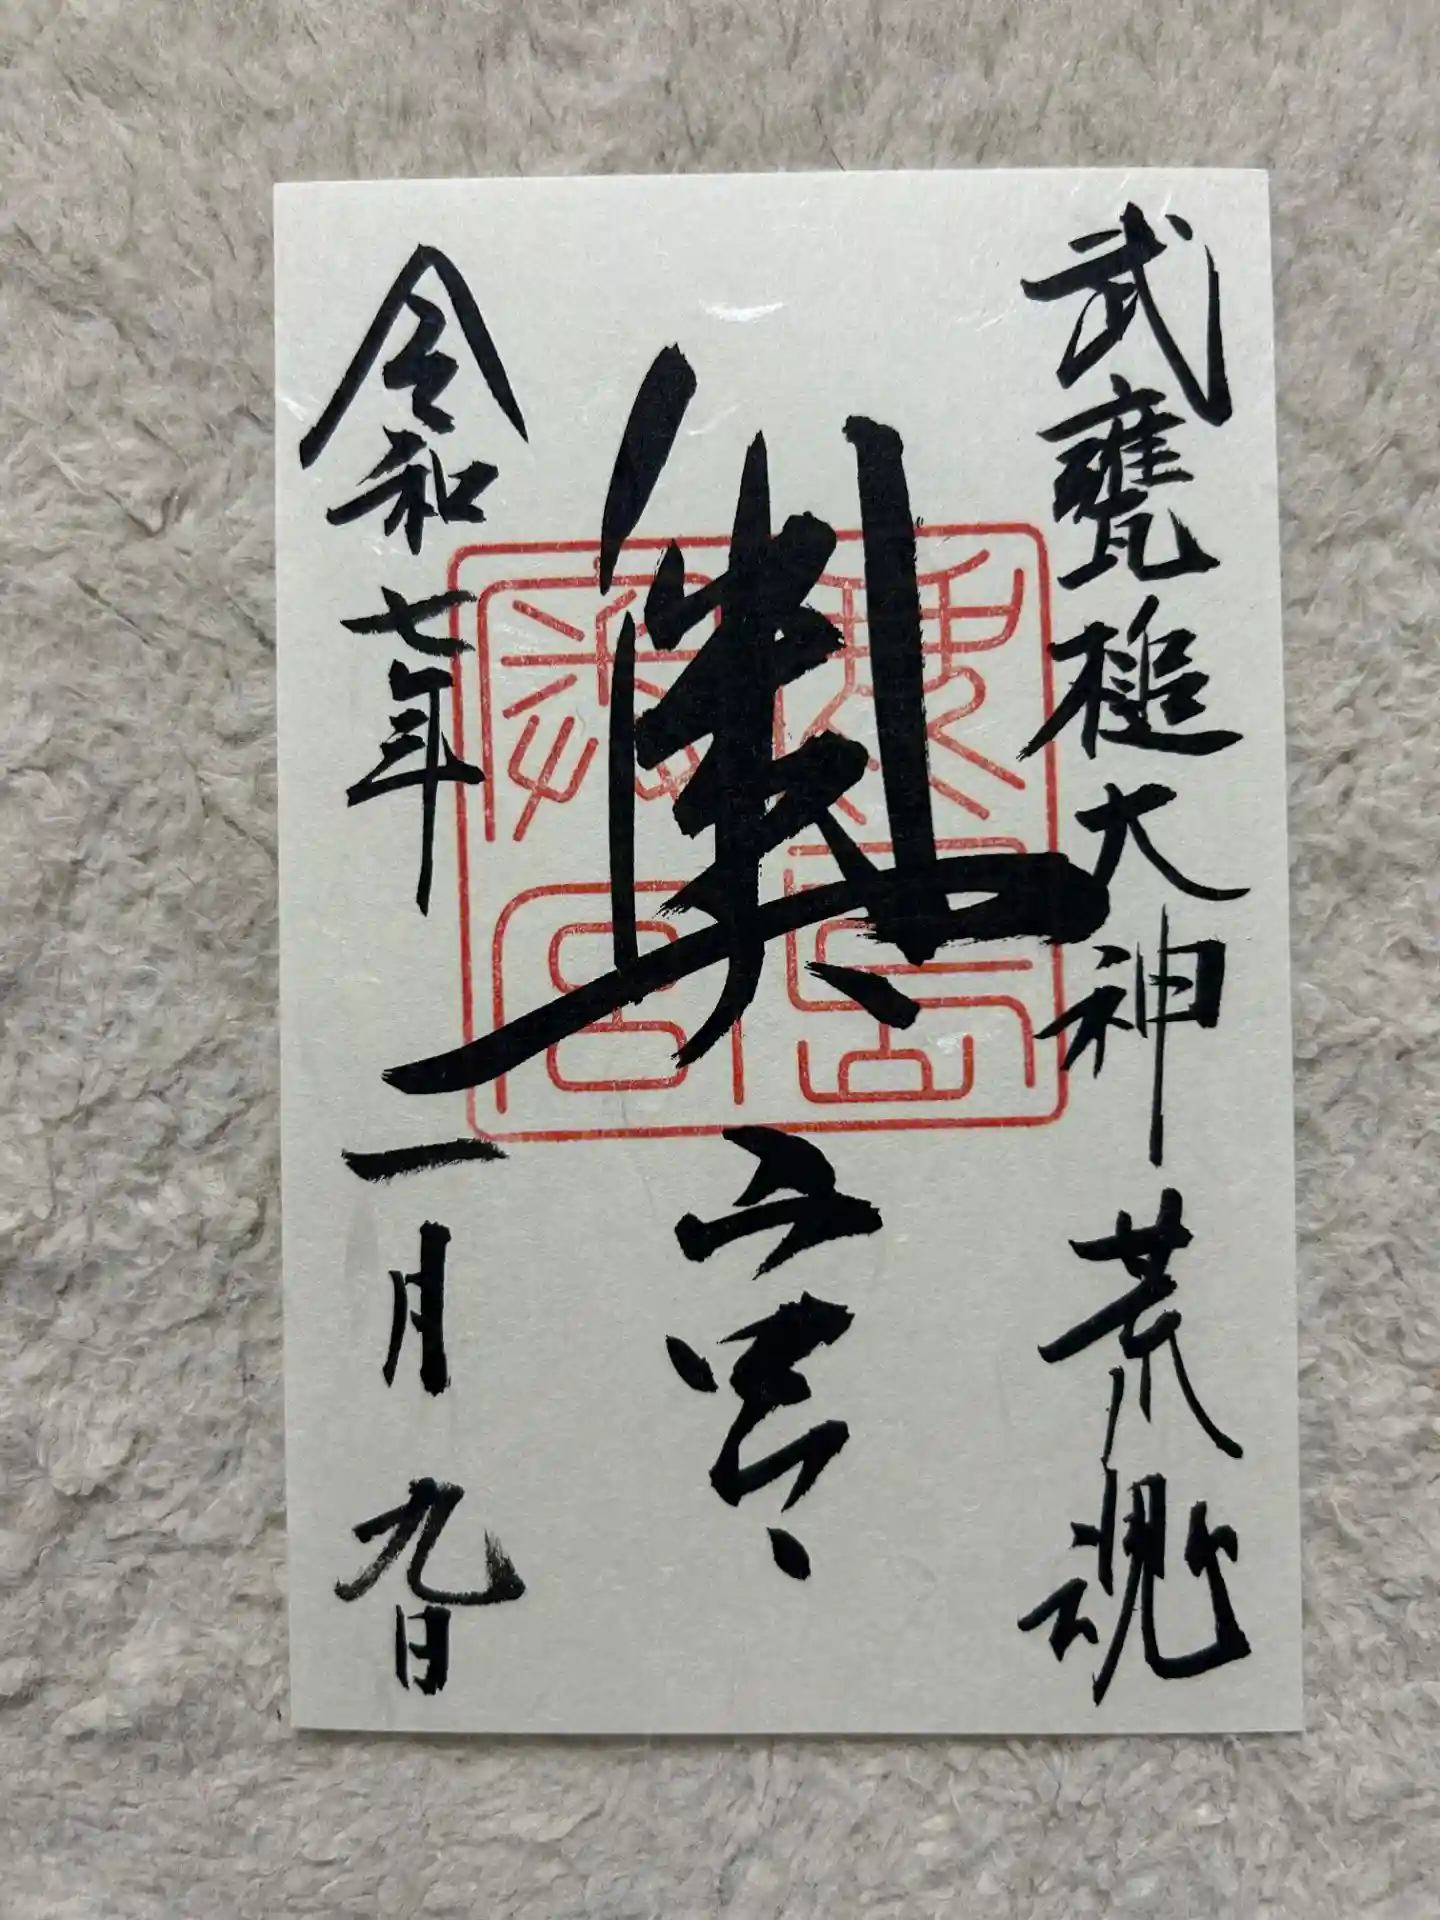 武甕槌大神荒魂
奥宮
鹿島
奥宮
令和七年一月九日